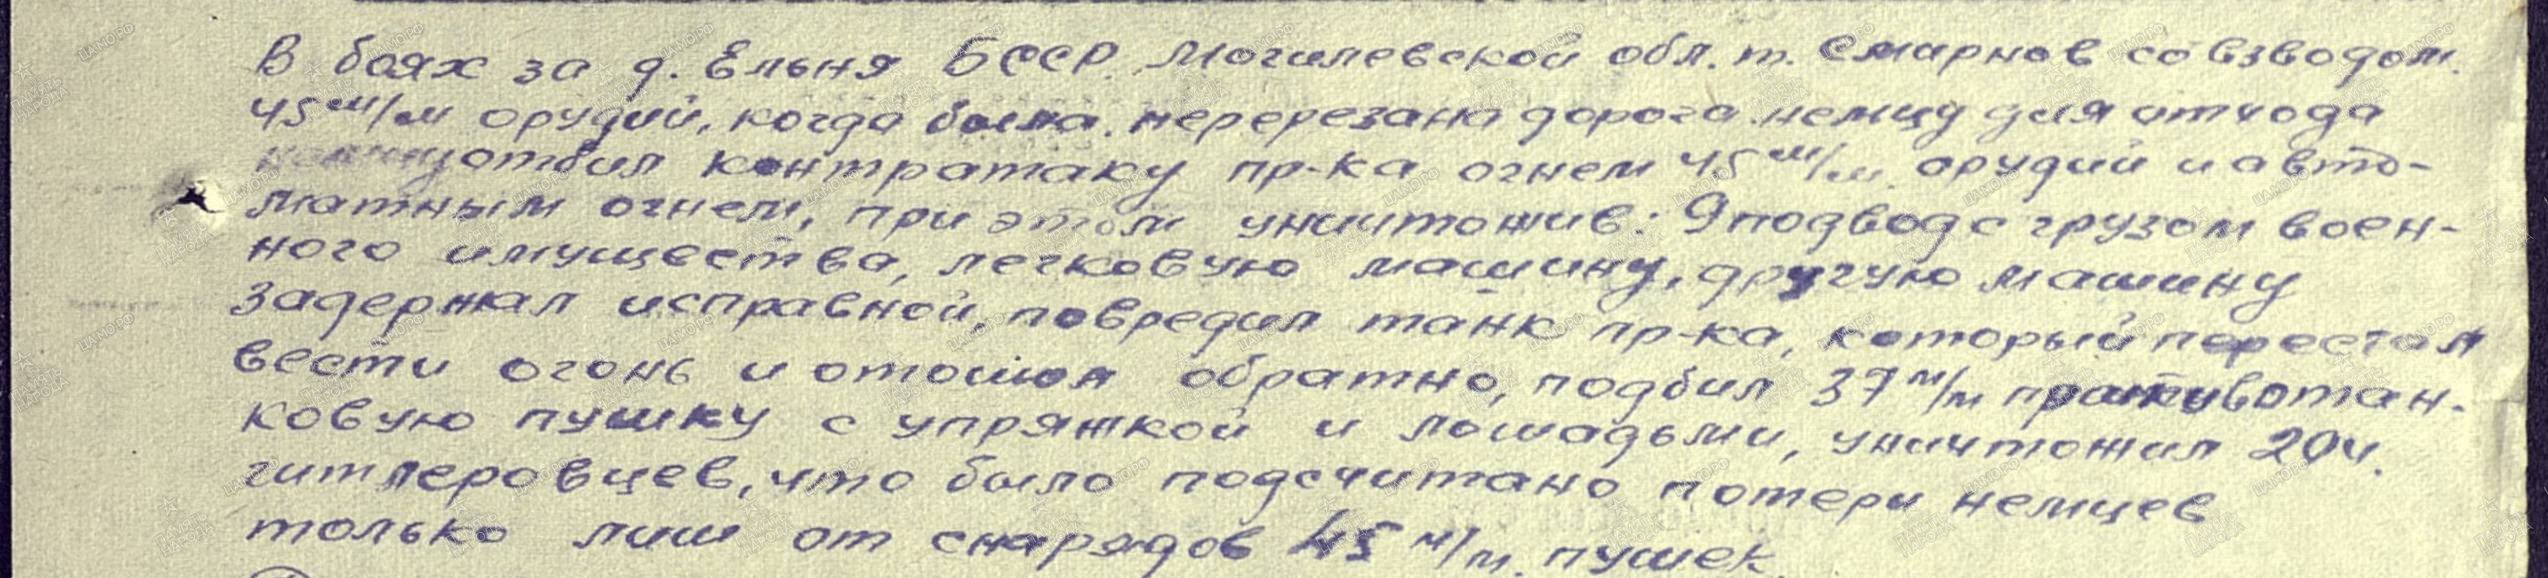 В боях за д. Ельня БССР Могилевской обл. т. Смарнов со взводом
45 м/м орудий, когда была перерезана дорога немцу для отхода
отбил контратаку пр-ка огнем 45 м/м орудий и авто-
матным огнем, при этом уничтожив: 9 подвод с грузом воен-
ного имущества, легковую машину, другую машину
задержал исправной, повредил танк пр-ка, который перестал
вести огонь и отошол обратно, подбил 37 м/м противотан-
ковую пушку с упряжкой и лошадьми, уничтожил 20 ч.
гитлеровцев, что было подсчитано потери немцев
только лиш от снарядов 45 м/м. пушек